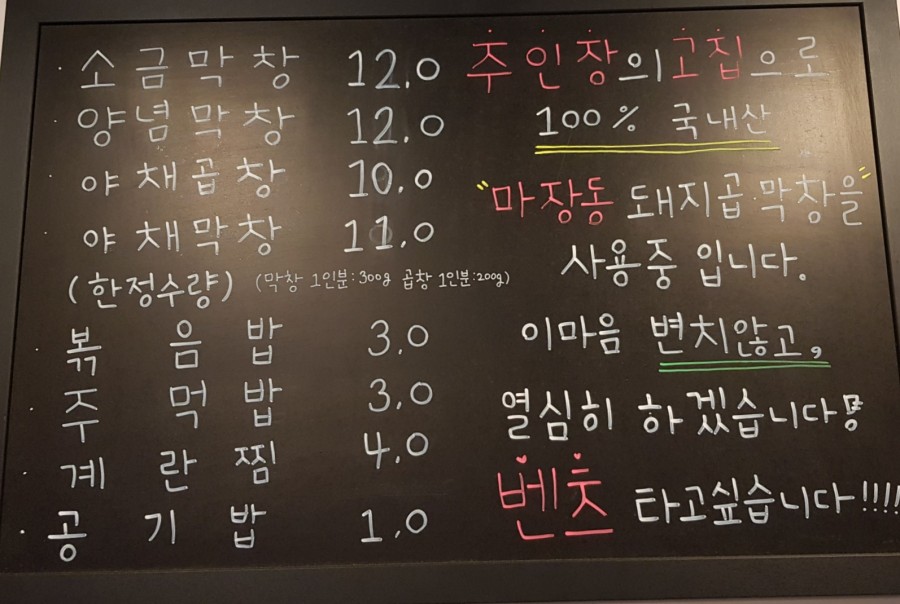 · 소금막창 12.0
양념막창 12.0
· 야채곱창 10.0
· 야채막창 11.0
(한정수량) (막창 1인분:300g 곱창 1인분:200g)
· 볶음밥 3.0
· 주먹밥 3.0
· 계란찜 4.0
· 공기밥 1.0
주인장의고집으로
100% 국내산
"마장동 돼지곱·막창을"
사용중 입니다.
이마음 변치않고,
열심히 하겠습니다!
벤츠 타고싶습니다!!!!